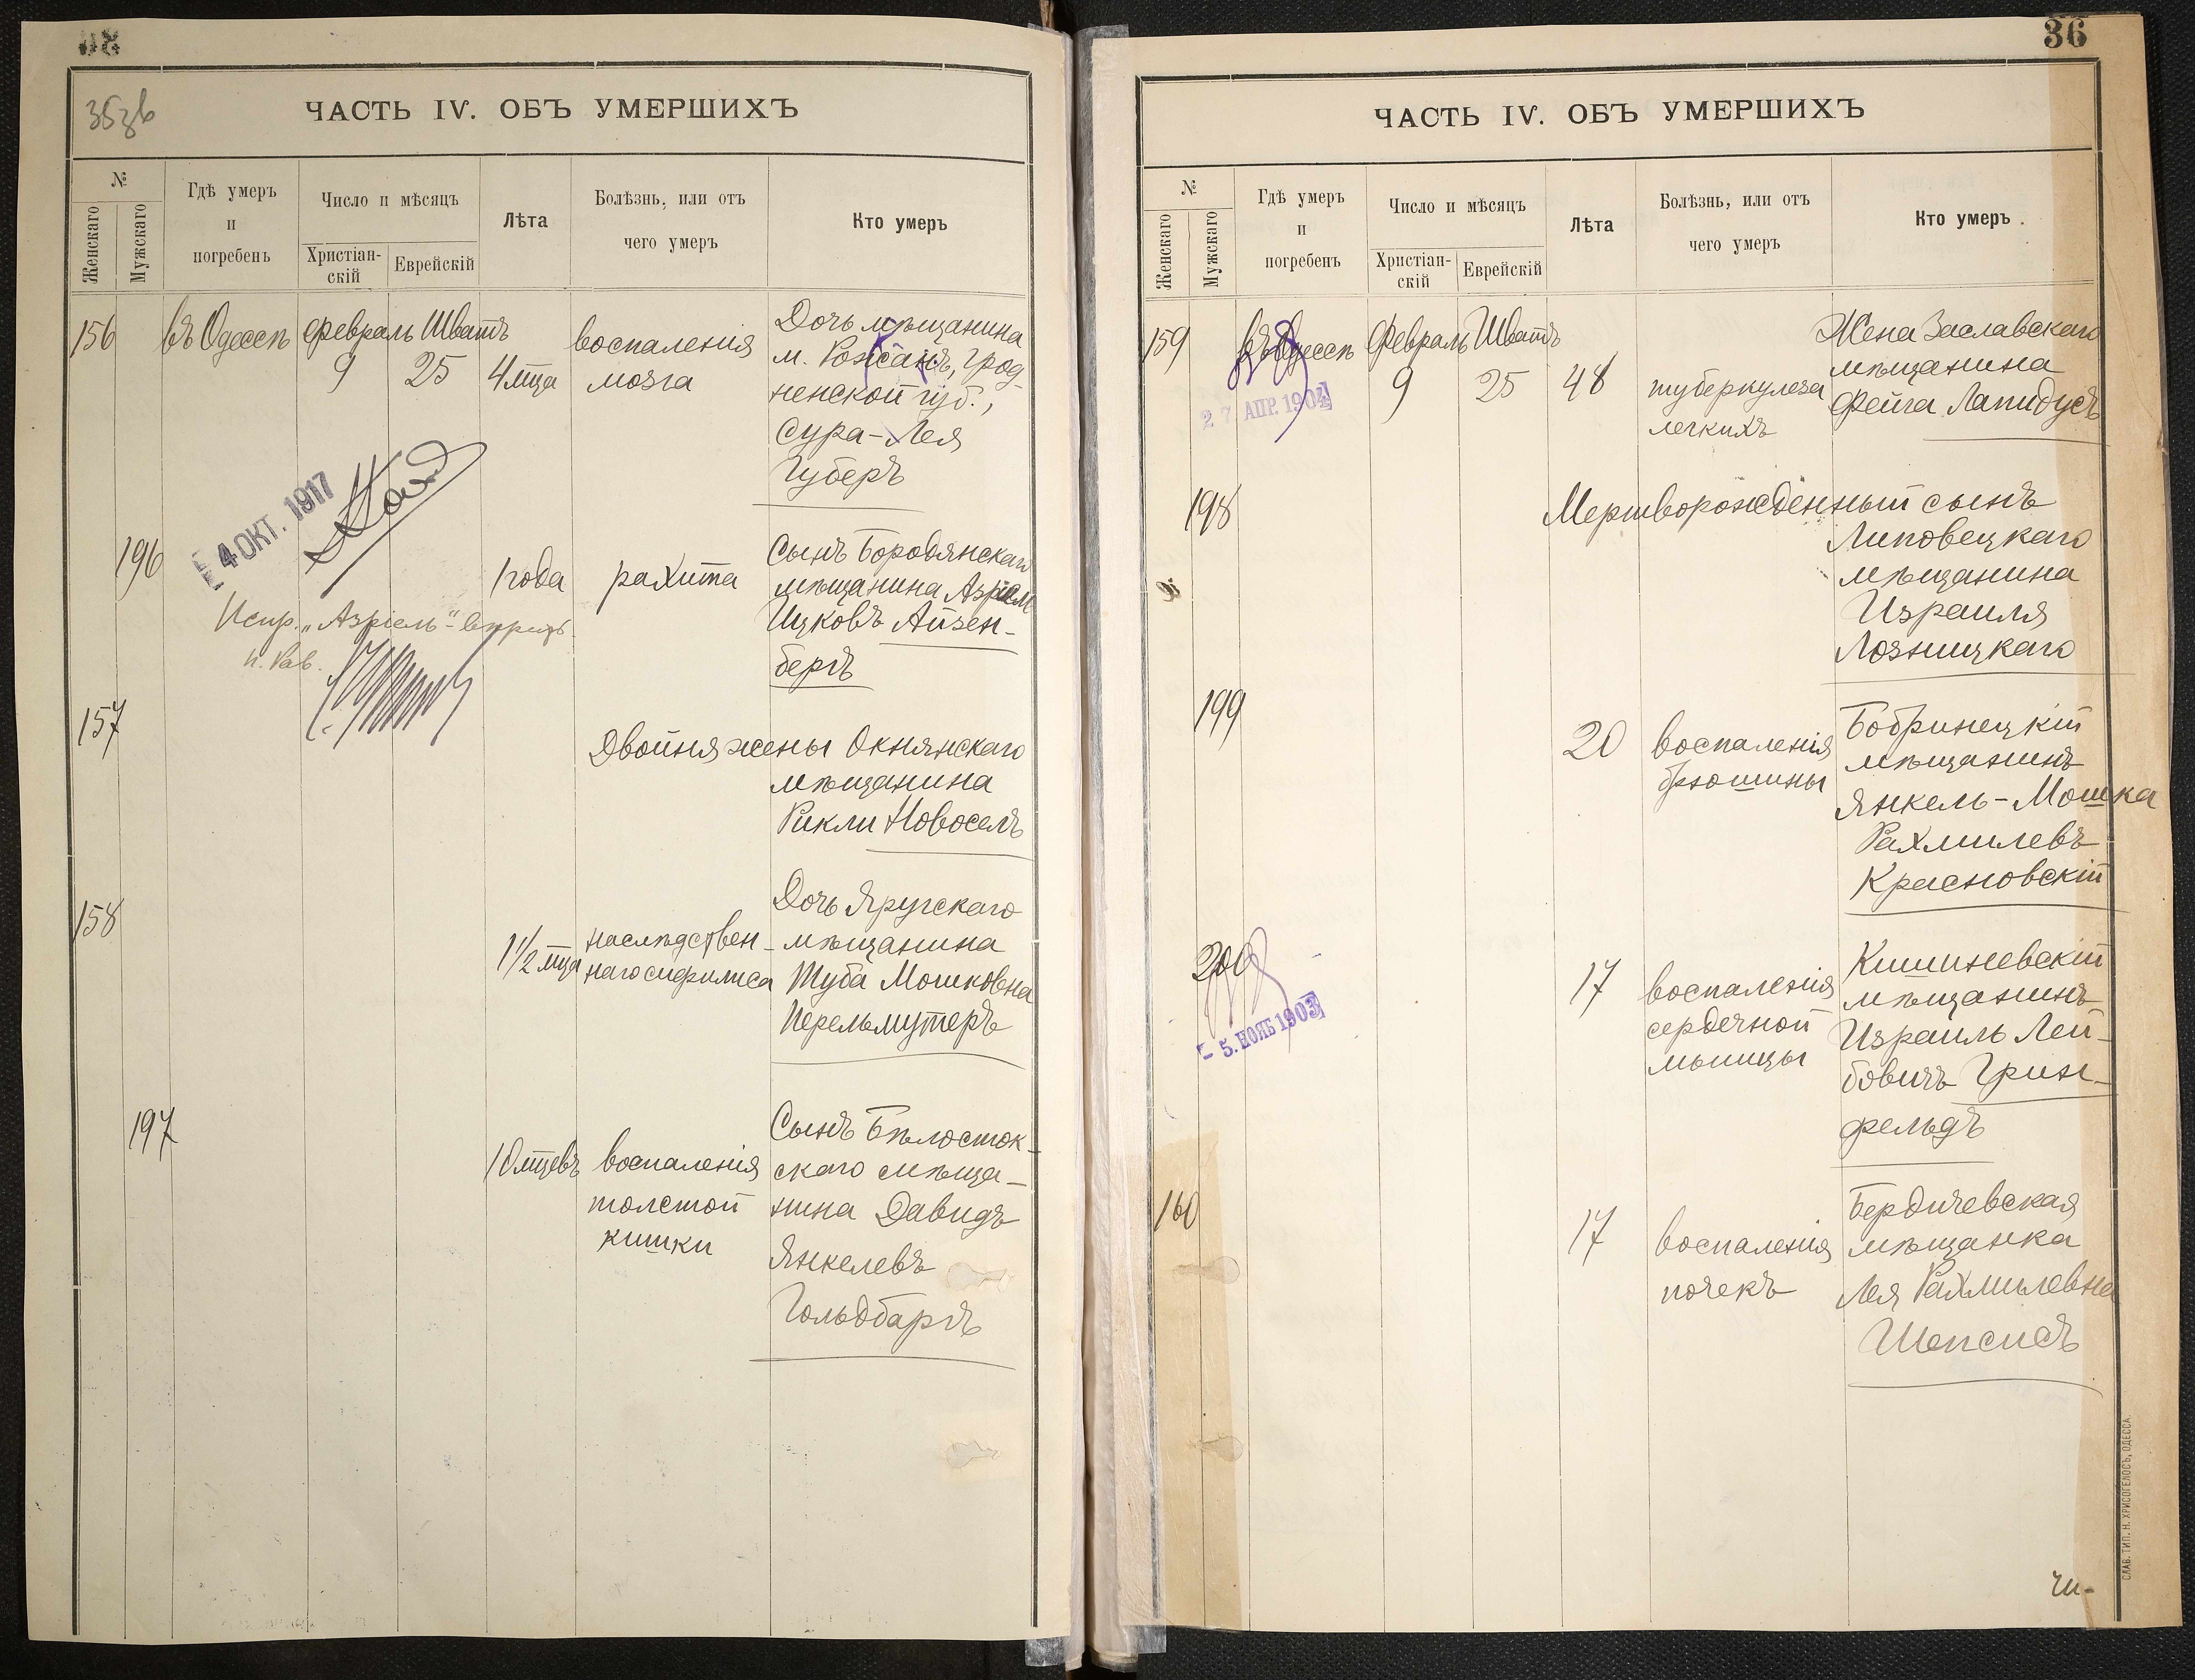 35зв
ЧАСТЬ IV. ОБЪ УМЕРШИХЪ
№
Женскаго
Мужскаго
Гдѣ умеръ
и
погребенъ
Число и мѣсяцъ
Христіан-
скій
Еврейскій
Лѣта
Болѣзнь, или отъ
чего умеръ
Кто умеръ
156
въ Одессѣ
Февраль
9
Шватъ
25
4 мца
воспаленія
мозга
Дочь мѣщанина
м. Рожсанъ, Грод-
ненской губ.,
Сура-Лея
Губеръ
4 ОКТ. 1917
196
1 года
рахита
Сынъ Бородянскаго
мѣщанина Азріел
Ицковъ Айзен-
бергъ
Испр. „Азріель"
п. Рав.
157
Двойня жены Окнянскаго
мѣщанина
Рикли Новоселъ
158
1 1/2 мца
наслѣдствен-
наго сифилиса
Дочь Яругскаго
мѣщанина
Туба Мошковна
Перельмутеръ
197
10 мцевъ
воспаленія
толстой
кишки
Сынъ Бѣлосток-
скаго мѣща-
нина Давидъ
Янкелевъ
Гольдбаргъ
36
ЧАСТЬ IV. ОБЪ УМЕРШИХЪ
№
Женскаго
Мужскаго
Гдѣ умеръ
и
погребенъ
Число и мѣсяцъ
Христіан-
скій
Еврейскій
Лѣта
Болѣзнь, или отъ
чего умеръ
Кто умеръ
159
въ Одессѣ
27 АПР. 1904
Февраль
9
Шватъ
25
48
туберкулеза
легкихъ
Жена Заславскаго
мѣщанина
Фейга Лапидусъ
198
Мертворожденный сынъ
Липовецкаго
мѣщанина
Израиля
Лозницкаго
199
20
воспаленія
брюшины
Бобринецкій
мѣщанинъ
Янкель-Мошка
Рахмилевъ
Красновскій
200
5. НОЯБ 1903
17
воспаленія
сердечной
мышцы
Кишиневскій
мѣщанинъ
Израиль Лей-
бовичъ Грин-
фельдъ
160
17
воспаленія
почекъ
Бердичевская
мѣщанка
Лея Рахмилевна
Шепсисъ
чи-
СЛАВ. ТИП. Н. ХРИСОГЕЛОСЪ, ОДЕССА.